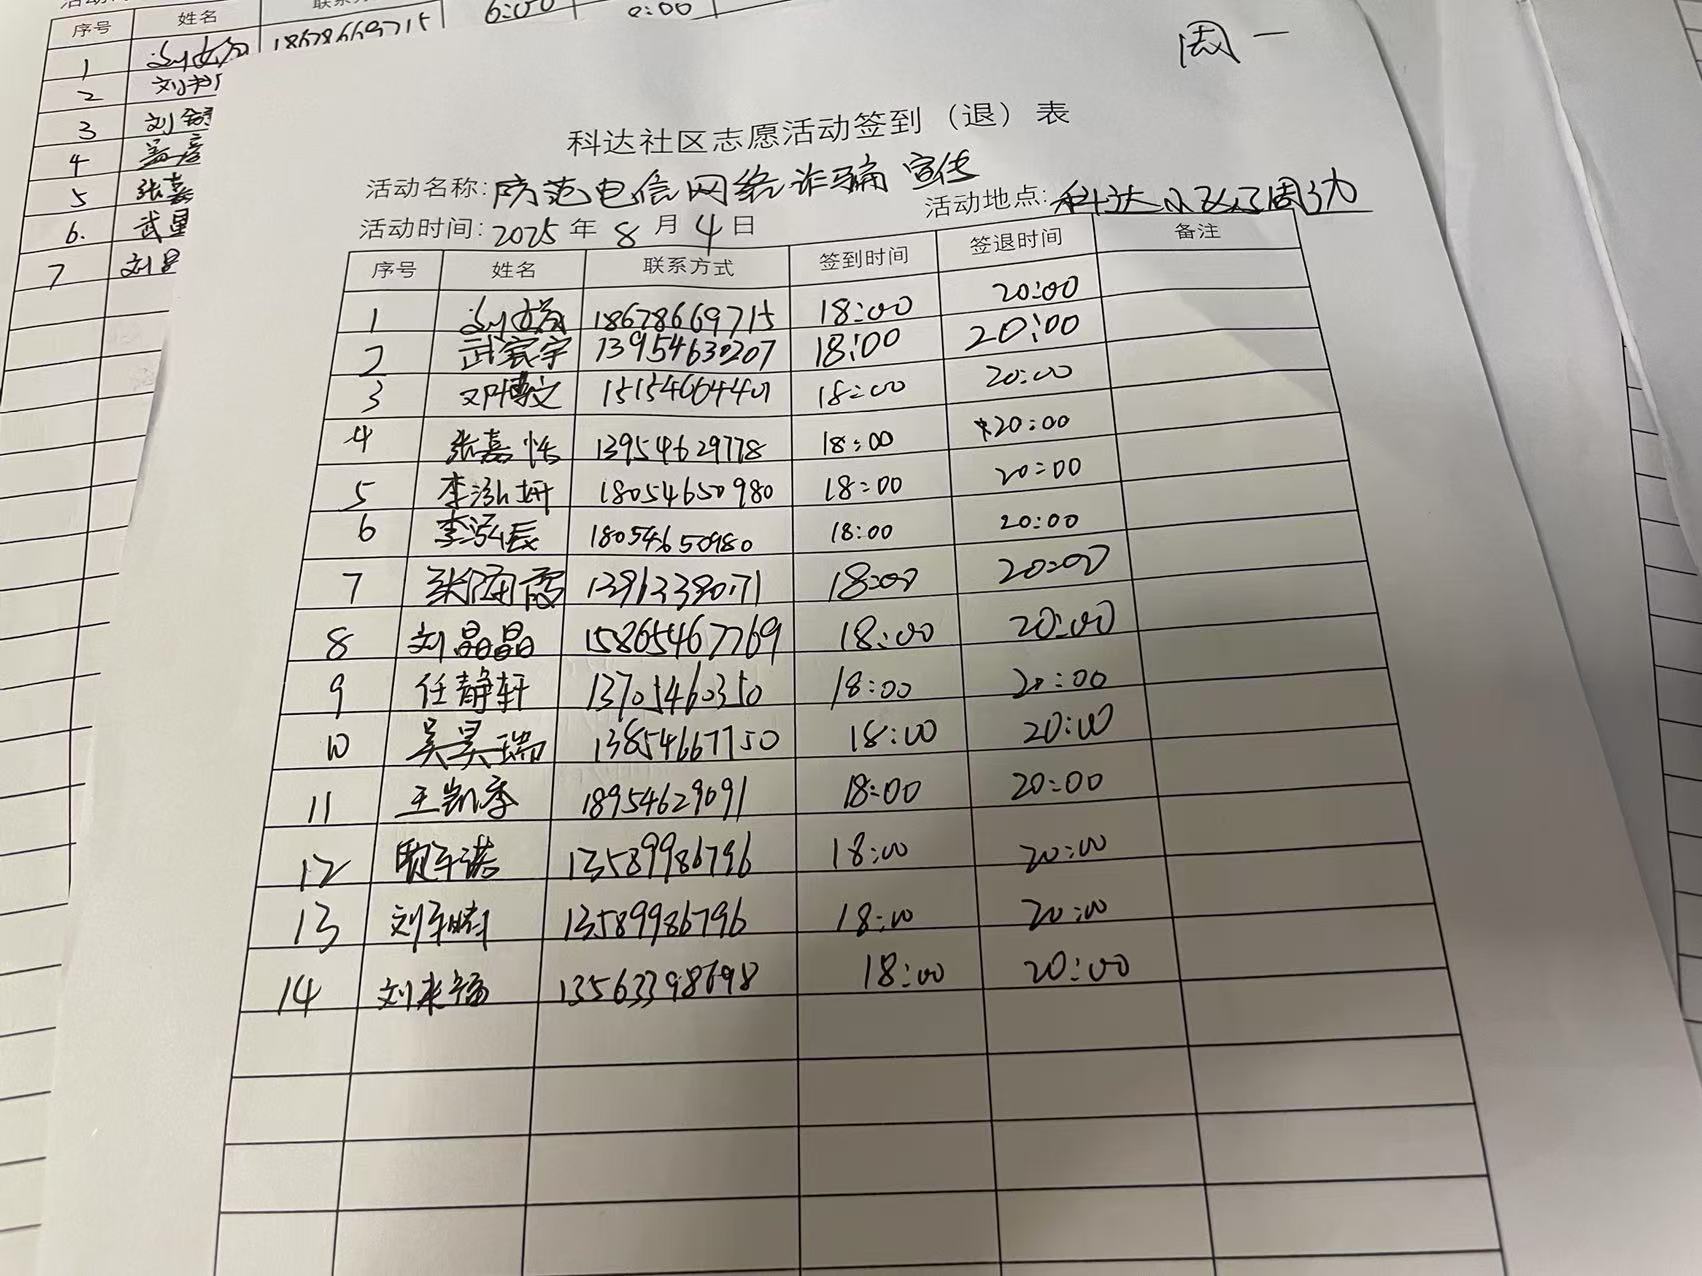 序号 姓名 6:00
1 18678669715
2
3
4
5 张嘉
6.
7
周一
科达社区志愿活动签到（退）表
活动名称: 防范电信网络诈骗宣传
活动地点: 科达小区周边
活动时间: 2025年 8月 4日
序号 姓名 联系方式 签到时间 签退时间 备注
1 18678669715 18:00 20:00
2 武寰宇 13954630207 18:00 20:00
3 邓博文 15154664401 18:00 20:00
4 张嘉怡 13954629778 18:00 20:00
5 李泓妍 18054650980 18:00 20:00
6 李泓辰 18054650980 18:00 20:00
7 张海霞 18:00 20:00
8 刘晶晶 15865467769 18:00 20:00
9 任静轩 13705460350 18:00 20:00
10 吴昊瑞 13854667750 18:00 20:00
11 王凯 18954629091 18:00 20:00
12 13589986796 18:00 20:00
13 13589986796 18:00 20:00
14 刘来福 13563398698 18:00 20:00